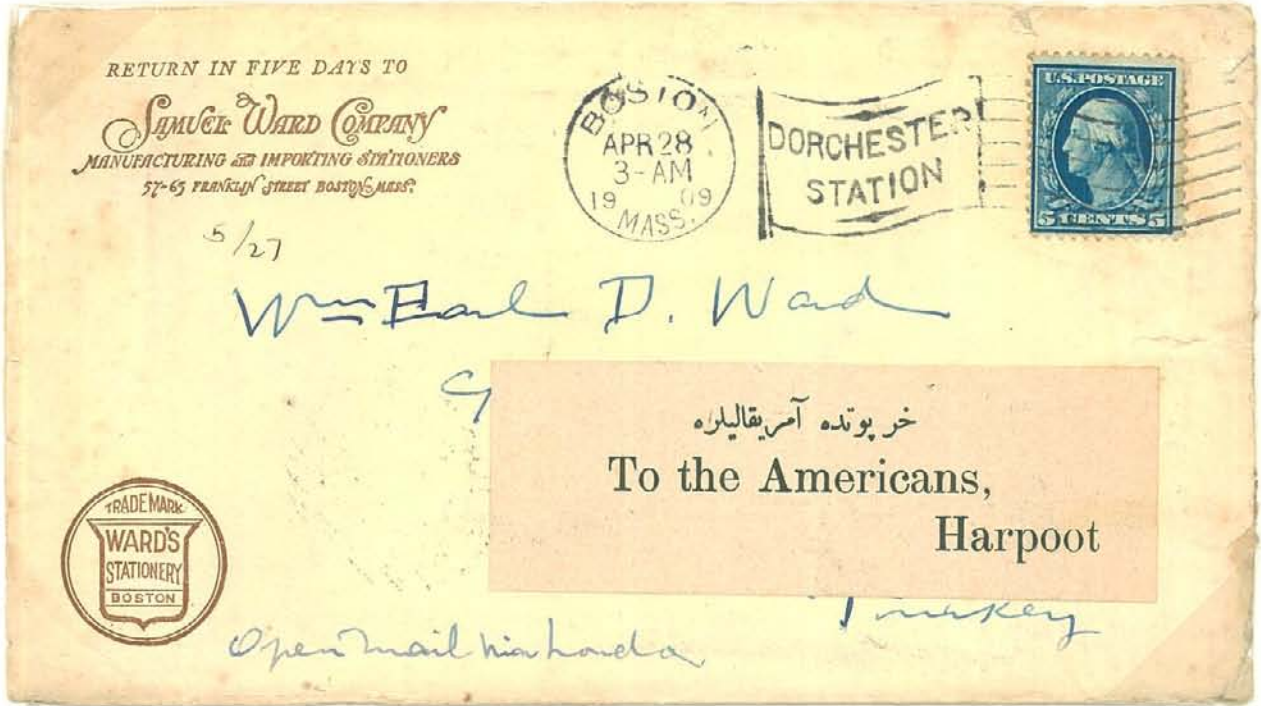 RETURN IN FIVE DAYS TO
SAMUEL WARD COMPANY
MANUFACTURING AND IMPORTING STATIONERS
57-65 FRANKLIN STREET BOSTON, MASS.
BOSTON
APR 28
3-AM
1909
MASS.
DORCHESTER
STATION
U.S. POSTAGE
5 CENTS 5
5/27
Wm Earl D. Ward
خرپوتده آمریقالیلره
To the Americans,
Harpoot
Turkey
TRADE MARK
WARD'S
STATIONERY
BOSTON
Open mail via London